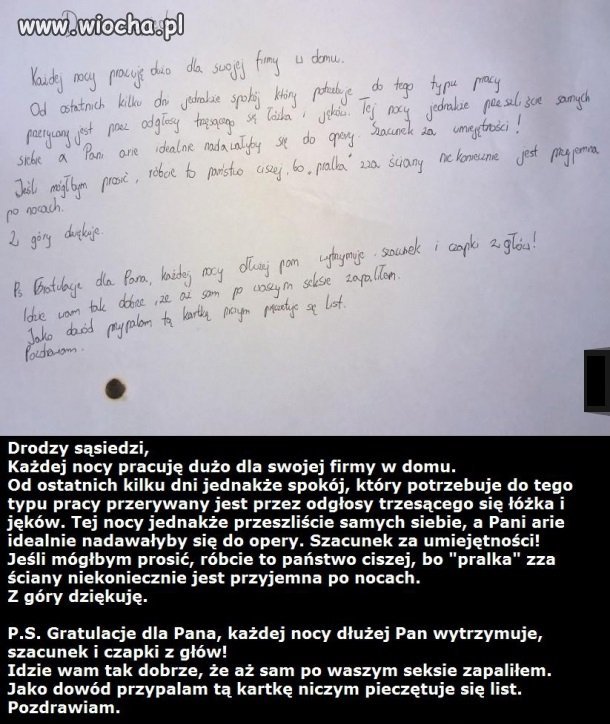 www.wiocha.pl
Każdej nocy pracuję dużo dla swojej firmy w domu.
Od ostatnich kilku dni jednakże spokój który potrzebuje do tego typu pracy
przerywany jest przez odgłosy trzęsącego się łóżka i jęków. Tej nocy jednakże przeszliście samych
siebie a Pani arie idealnie nadawałyby się do opery. Szacunek za umiejętności!
Jeśli mógłbym prosić, róbcie to państwo ciszej, bo „pralka" zza ściany nie koniecznie jest przyjemna
po nocach.
Z góry dziękuje.
Ps Gratulacje dla Pana, każdej nocy dłużej pan wytrzymuje. szacunek i czapki z głów!
Idzie wam tak dobrze, że aż sam po waszym seksie zapaliłem.
Jako dowód przypalam tą kartkę niczym pieczętuje się list.
Pozdrawiam.
Drodzy sąsiedzi,
Każdej nocy pracuję dużo dla swojej firmy w domu.
Od ostatnich kilku dni jednakże spokój, który potrzebuje do tego
typu pracy przerywany jest przez odgłosy trzesącego się łóżka i
jęków. Tej nocy jednakże przeszliście samych siebie, a Pani arie
idealnie nadawałyby się do opery. Szacunek za umiejętności!
Jeśli mógłbym prosić, róbcie to państwo ciszej, bo "pralka" zza
ściany niekoniecznie jest przyjemna po nocach.
Z góry dziękuję.
P.S. Gratulacje dla Pana, każdej nocy dłużej Pan wytrzymuje,
szacunek i czapki z głów!
Idzie wam tak dobrze, że aż sam po waszym seksie zapaliłem.
Jako dowód przypalam tą kartkę niczym pieczętuje się list.
Pozdrawiam.